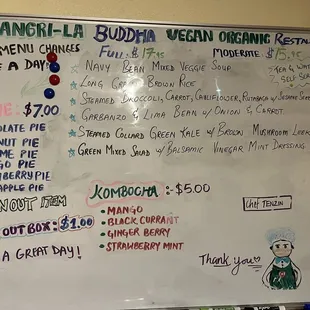 ANGRI-LA BUDDHA VEGAN ORGANIC RESTA
MENU CHANGES
E A DAY
FULL: $17.95
MODERATE: $15.95
NAVY BEAN MIXED VEGGIE SOUP
LONG GRAIN BROWN RICE
STEAMED BROCCOLI, CARROT, CAULIFLOWER, RUTABAGA W/ SESAME
GARBANZO & LIMA BEAN W/ ONION & CARROT
STEAMED COLLARD GREEN KALE W/ BROWN MUSHROOM
GREEN MIXED SALAD W/ BALSAMIC VINEGAR MINT DRESSING
E: $7.00
OLATE PIE
NUT PIE
ME PIE
GO PIE
BERRY PIE
APPLE PIE
N OUT ITEM
OUT BOX: $1.00
A GREAT DAY!
KOMBOCHA :-$5.00
• MANGO
• BLACK CURRANT
• GINGER BERRY
• STRAWBERRY MINT
Chef TENZIN
Thank you